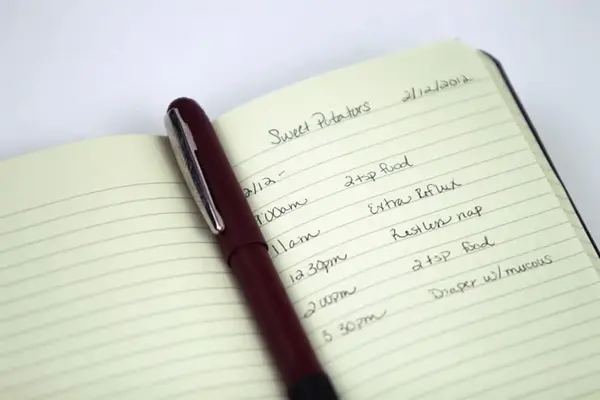 Sweet Potatoes 2/12/2012
2/12-
9:00am 2 tsp food
11am Extra Reflux
12:30pm Restless nap
2:00pm 2 tsp food
3:30pm Diaper w/mucous